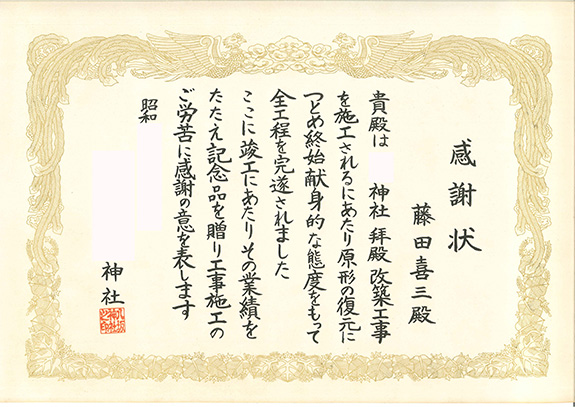 感謝状
藤田喜三殿
貴殿は 神社 拝殿 改築工事
を施工されるにあたり原形の復元に
つとめ終始献身的な態度をもって
全工程を完遂されました
ここに竣工にあたりその業績を
たたえ記念品を贈り工事施工の
ご労苦に感謝の意を表します
昭和
神社